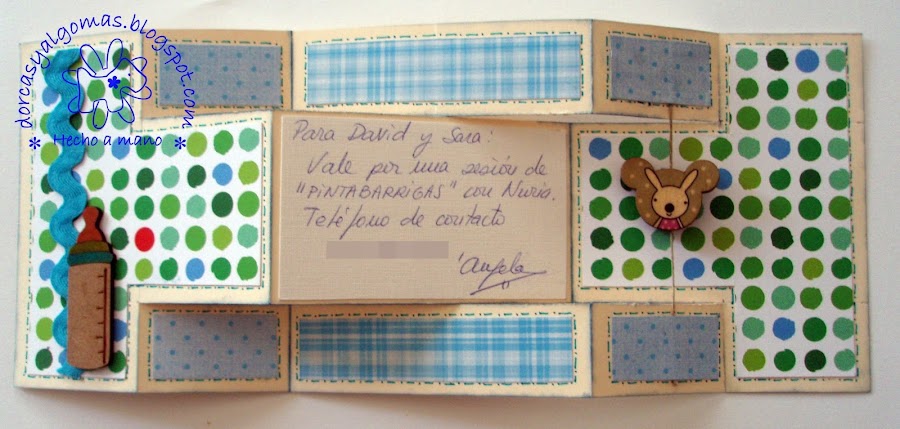 dorcasyalgomas.blogspot.com
* Hecho a mano *
Para David y Sara:
Vale por una sesión de
"PINTABARRIGAS" con Nuria.
Teléfono de contacto
Angela